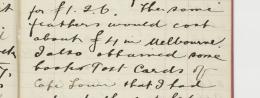 for £1.2.6. The same
feathers would cost
about £4 in Melbourne.
I also obtained some
books Post Cards of
Cape Town that I had